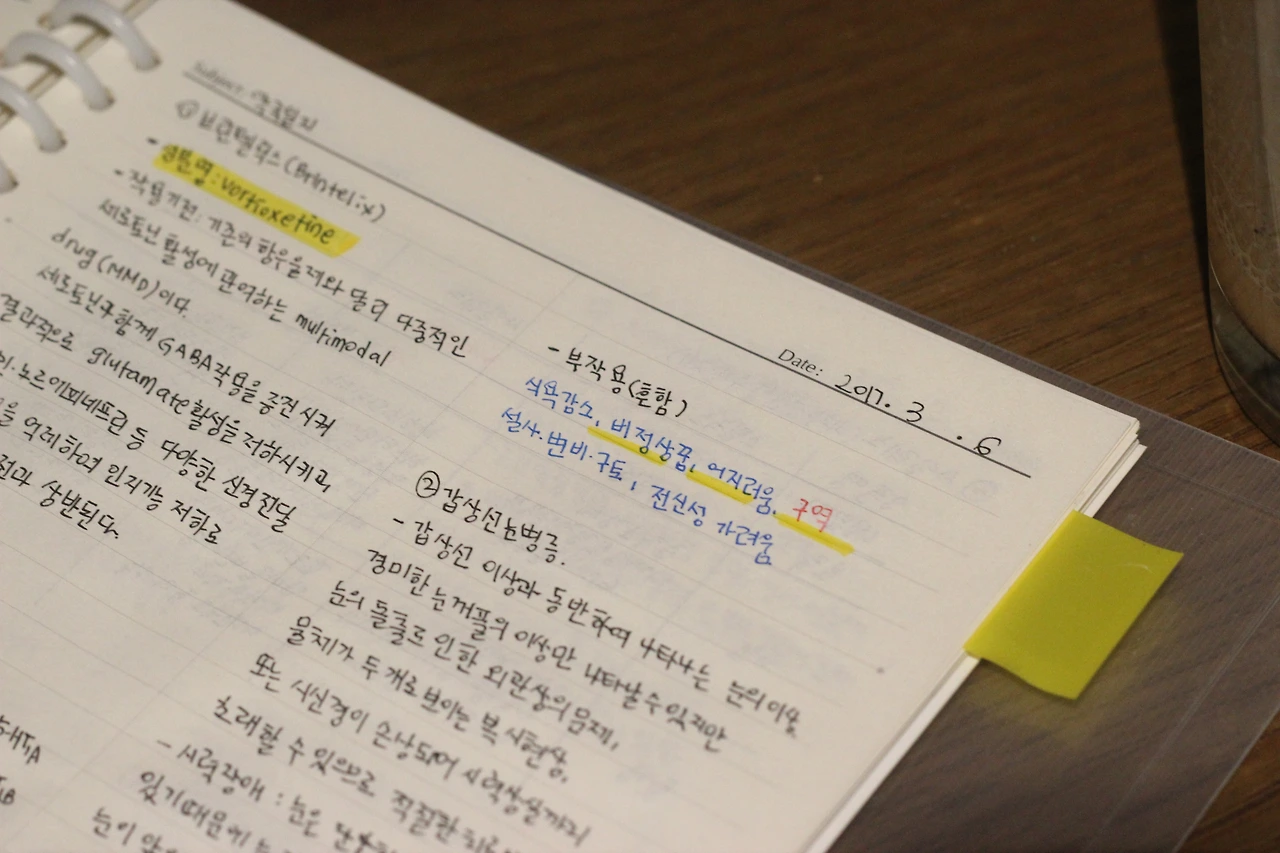 Subject: 약국일지
Date: 2017. 3. 6
① 브린텔릭스(Brintelix)
- 성분명: Vortioxetine
- 작용기전: 기존의 항우울제와 달리 다중적인
세로토닌 활성에 관여하는 multimodal
drug(MMD)이다
세로토닌과 함께 GABA작용을 증진시켜
결과적으로 glutamate활성을 저하시키고
노르에피네프린 등 다양한 신경전달
을 억제하여 인지기능 저하로
상반된다.
- 부작용(흔함)
식욕감소, 비정상꿈, 어지러움, 구역
설사·변비·구토, 전신성 가려움
② 갑상선눈병증.
- 갑상선 이상과 동반하여 나타나는 눈의 이상
경미한 눈꺼풀의 이상만 나타날 수 있지만
눈의 돌출로 인한 외관상의 문제,
물체가 두 개로 보이는 복시현상,
또는 시신경이 손상되어 시력상실까지
초래할 수 있으므로 적절한
- 시력장애 : 눈은
있기때문에
눈이